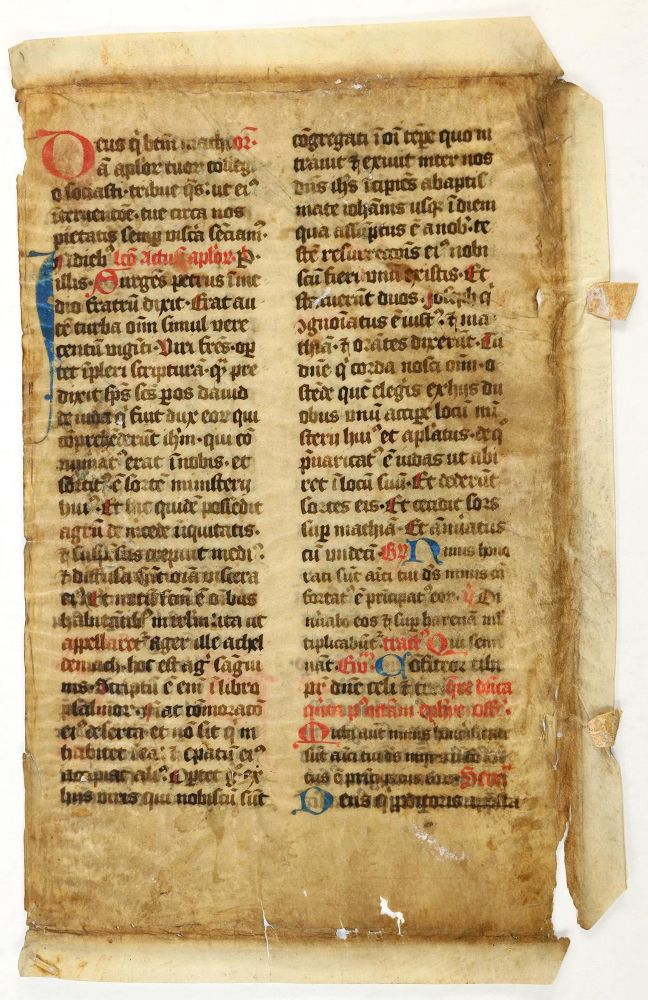 Deus q̇ btm̄ mathiā or̄.
ā aplor̄ tuor̄ collegi
o sociasti· tribue q̄s· ut eiꝰ
īteruentōe· tue circa nos
pietatis semꝑ viscā senciamꝰ·
In diebꝰ lcō Actuū aplor̄· P.
illis· Surgens petrus ī me
dio fratrū dixit· Erat au
tē turba om̄ simul vere
centū viginti· Viri frēs· opꝛ
tet īpleri scripturā· qͣ pre
dixit sp̄s scs̄ p os dauid
de iuda q̇ fuit dux eor̄ qui
cōprehēderūt ihm̄· qui cō
numatꝰ erat ī nobis· et
sortitꝰ ē sortē ministerij
huiꝰ· Et hic quidē possedit
agrū de m̄cede īiquitatis·
⁊ suspēsus crepuit mediꝰ
⁊ diffusa sūt oīa viscera
eiꝰ· Et notū fctm̄ ē oībus
habitātibꝫ in ierl̄m ita ut
appellaretꝛ ager ille achel
demach· hoc est agꝛ sāgui
nis· Scriptū ē enī ī libro
psalmor̄· fiat cōmoracō
eiꝰ deserta et no sit q̇ in
habitet ī ea· ⁊ ep̄atū eiꝰ
accipiat aliꝰ· Oportet g̊ ex
hijs viris qui nobiscū sūt
cōgregati ī oī tēpe quo in
trauit ⁊ exiuit inter nos
dn̄s ih̄s īcipiēs a baptis
mate iohānis usqꝫ ī diem
qua assūptus ē a nob̄· te
stē resurreccōis eiꝰ nobi
scū fieri vnū ex istis· Et
statuerūt duos· Joseph q̇
ꝯgnoīatus ē iustꝰ· ⁊ ma
thiā· ⁊ orātes dixerūt· Tu
dn̄e q̇ corda nosti om̄· o
stēde quē elegis ex hijs du
obus vnū accipe locū mī
sterij huiꝰ et aplatus· de qͦ
p̄uaricatꝰ ē iudas ut abi
ret ī locū suū· Et dederūt
sortes eis· Et cecidit sors
suꝑ mathiā· Et ānūatus
cū vndecī· Gꝛ̄ Nimis hono
rati sūt aīci tui ds̄ nimis cō
fortatꝰ ē pricipatꝰ eor̄· V Di
nūabo eos ⁊ suꝑ harenā ml̄
tiplicabūtꝛ· tractꝰ Qui semi
nāt· Gꝛ̄ Cōfiteor tibi
pr̄ dn̄e celi ⁊ tre·
Michi aut nimis honorati
sūt aīci tui ds̄ nimis cōfor
tus ē pricipatus eor̄· Secrē
Deus q̇